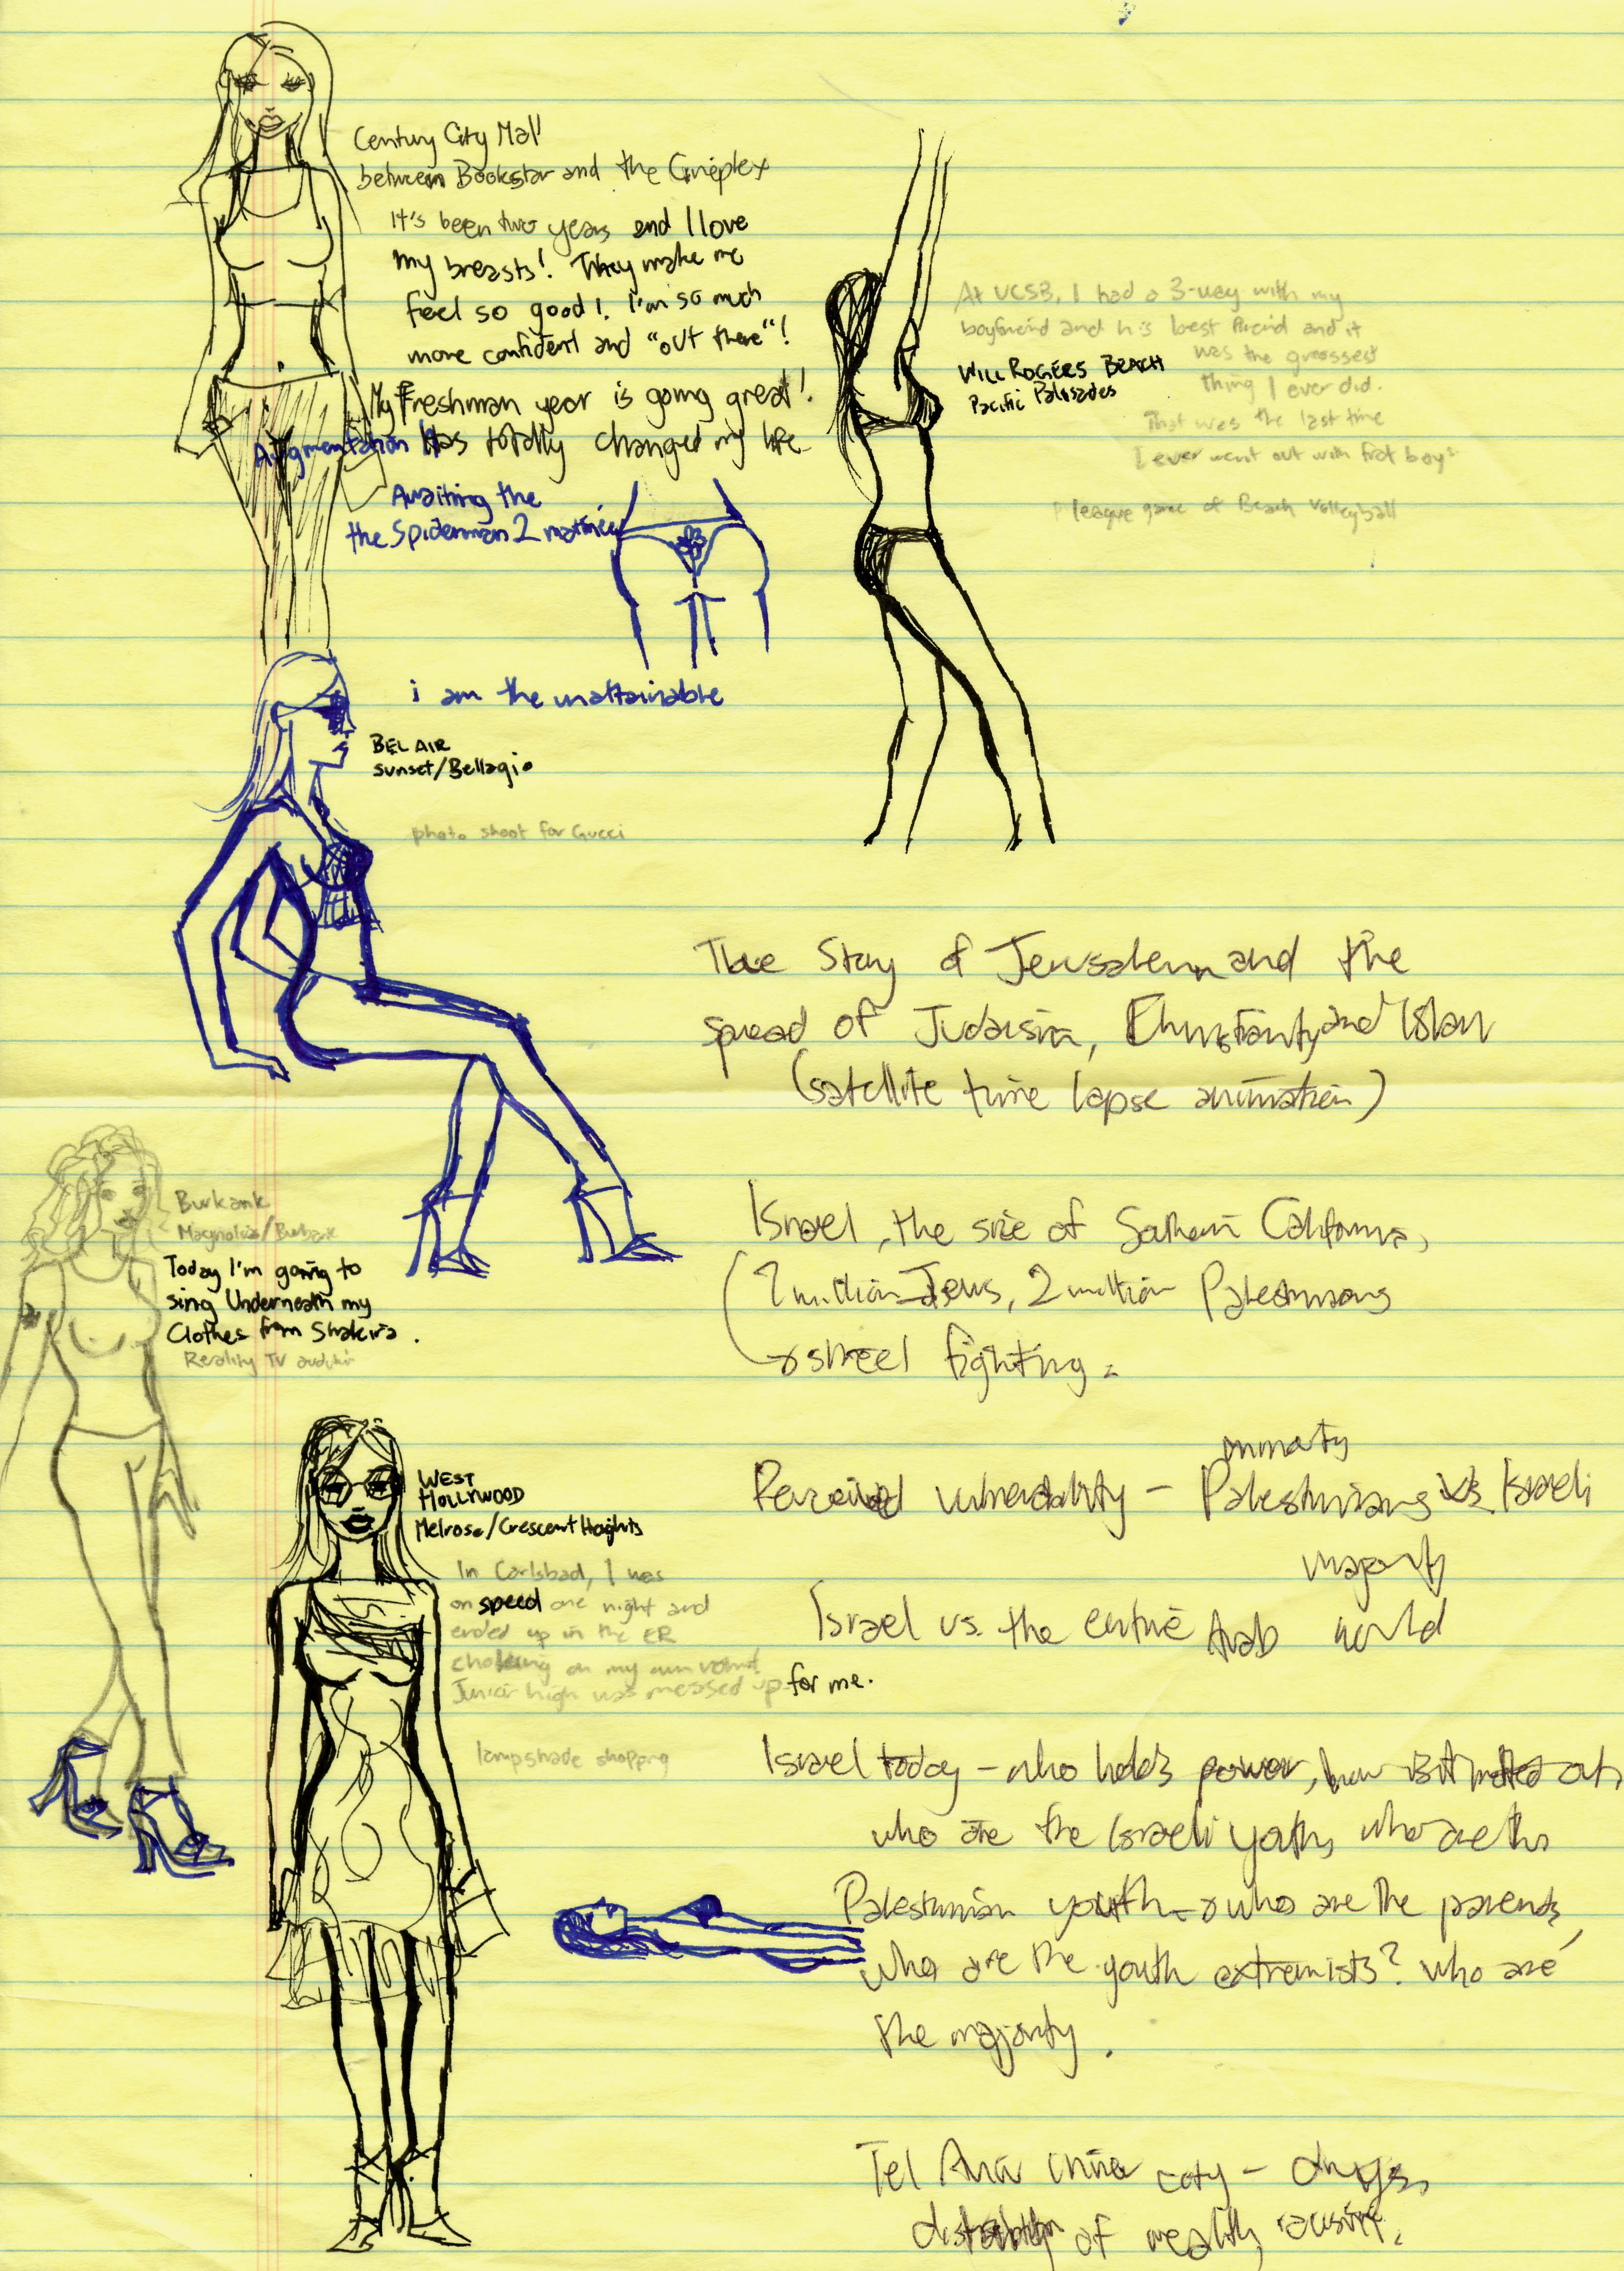 Century City Mall
between Bookstar and the Cineplex
It's been two years and I love
my breasts! They make me
feel so good! I'm so much
more confident and "out there"!
My Freshman year is going great!
Augmentation Has totally changed my life
Awaiting the
the Spiderman 2 matinée
At UCSB, I had a 3-way with my
boyfriend and his best friend and it
was the grossest
thing I ever did.
That was the last time
I ever went out with frat boys
WILL ROGERS BEACH
Pacific Palisades
league game of Beach Volleyball
i am the unattainable
BEL AIR
sunset/Bellagio
photo shoot for Gucci
The Story of Jerusalem and the
spread of Judaism, Christianity and Islam
(satellite time lapse animation)
Burbank
Magnolia/Burbank
Today I'm going to
sing Underneath my
Clothes from Shakira.
Reality TV audition
Israel, the size of Southern California,
7 million Jews, 2 million Palestinians
street fighting.
WEST
HOLLYWOOD
Melrose/Crescent Heights
In Carlsbad, I was
on speed one night and
ended up in the ER
choking on my own vomit.
Junior high was messed up for me.
lampshade shopping
minority
Perceived vulnerability - Palestinians vs. Israeli
majority
Israel vs. the entire Arab world
Israel today - who holds power, how is it meted out,
who are the Israeli youth, who are the
Palestinian youth who are the parents,
who are the youth extremists? who are
the majority.
Tel Aviv inner city - drugs,
distribution of wealth, racism.